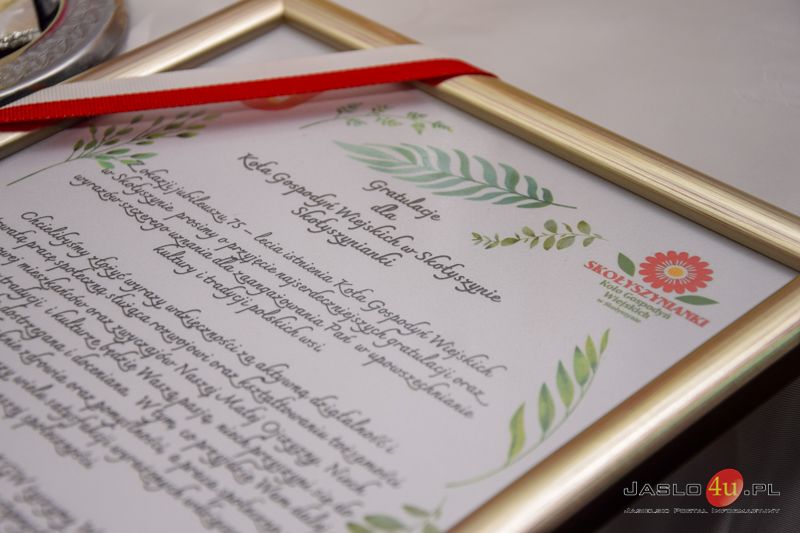 Gratulacje
dla
Koła Gospodyń Wiejskich w Skołyszynie
Skołyszynianki
Z okazji jubileuszu 75 – lecia istnienia Koła Gospodyń Wiejskich
w Skołyszynie, prosimy o przyjęcie najserdeczniejszych gratulacji oraz
wyrazów szczerego uznania dla zaangażowania Pań w upowszechnianie
kultury i tradycji polskich wsi.
Chcielibyśmy złożyć wyrazy wdzięczności za aktywną działalność i
pracę społeczną, służącą rozwojowi oraz kształtowaniu tożsamości
mieszkańców oraz zwyczajów Naszej Małej Ojczyzny. Niech
tradycji i kultury będzie Waszą pasją, niech przyczyni się
dostrzegana i doceniana. W tym, co przyjdzie
zdrowia oraz pomyślności, a praca
wiele satysfakcji
SKOŁYSZYNIANKI
Koło Gospodyń
Wiejskich
w Skołyszynie
JASLO4U.PL
JASIELSKI PORTAL INFORMACYJNY